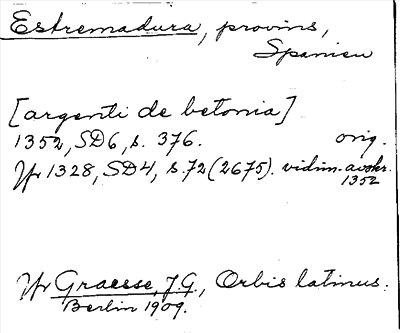 Estremadura, provins,
Spanien
[argenti de betonia]
1352, SD6, s. 376. orig.
Jfr 1328, SD4, s. 72 (2675). vidim. avskr.
1352
Jfr Graesse, J.G., Orbis latinus.
Berlin 1909.